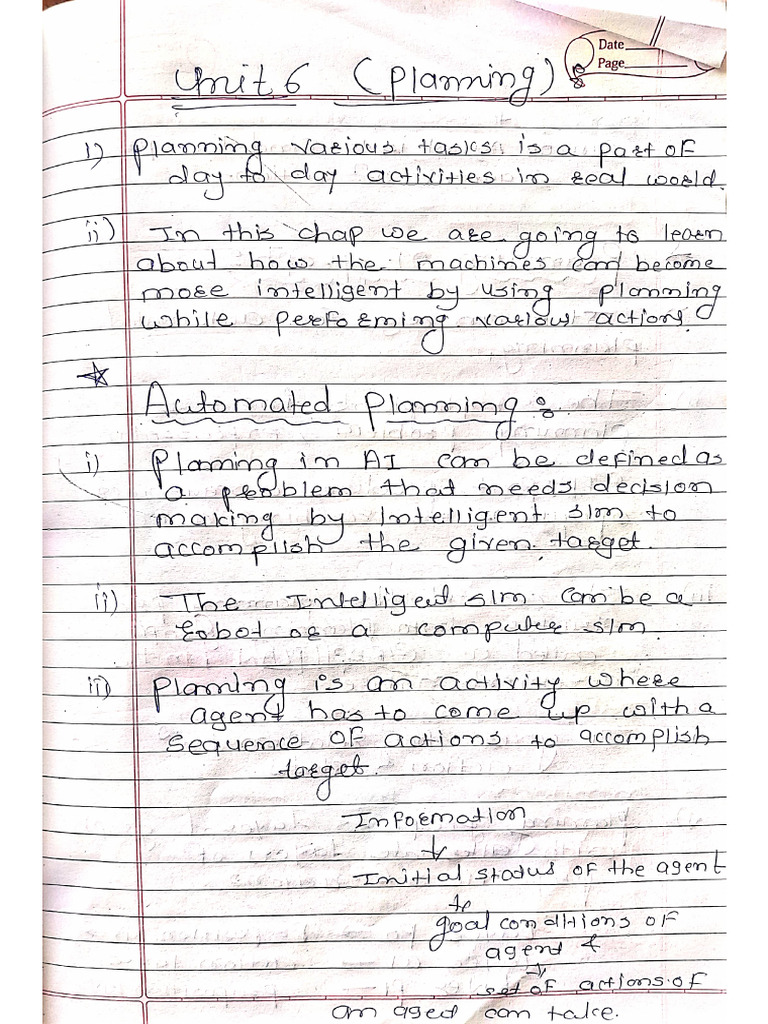 Date
Page
Unit 6 (Planning)
i) Planning various tasks is a part of
day to day activities in real world.
ii) In this chap we are going to learn
about how the machines can become
more intelligent by using planning
while performing various actions.
Automated Planning :
i) Planning in AI can be defined as
a problem that needs decision
making by Intelligent s/m to
accomplish the given target.
ii) The Intelligent s/m can be a
robot or a computer s/m
iii) Planning is an activity where
agent has to come up with a
sequence of actions to accomplish
target.
Information
↓
Initial status of the agent
↓
goal conditions of
agent &
↓
set of actions of
an aged can take.